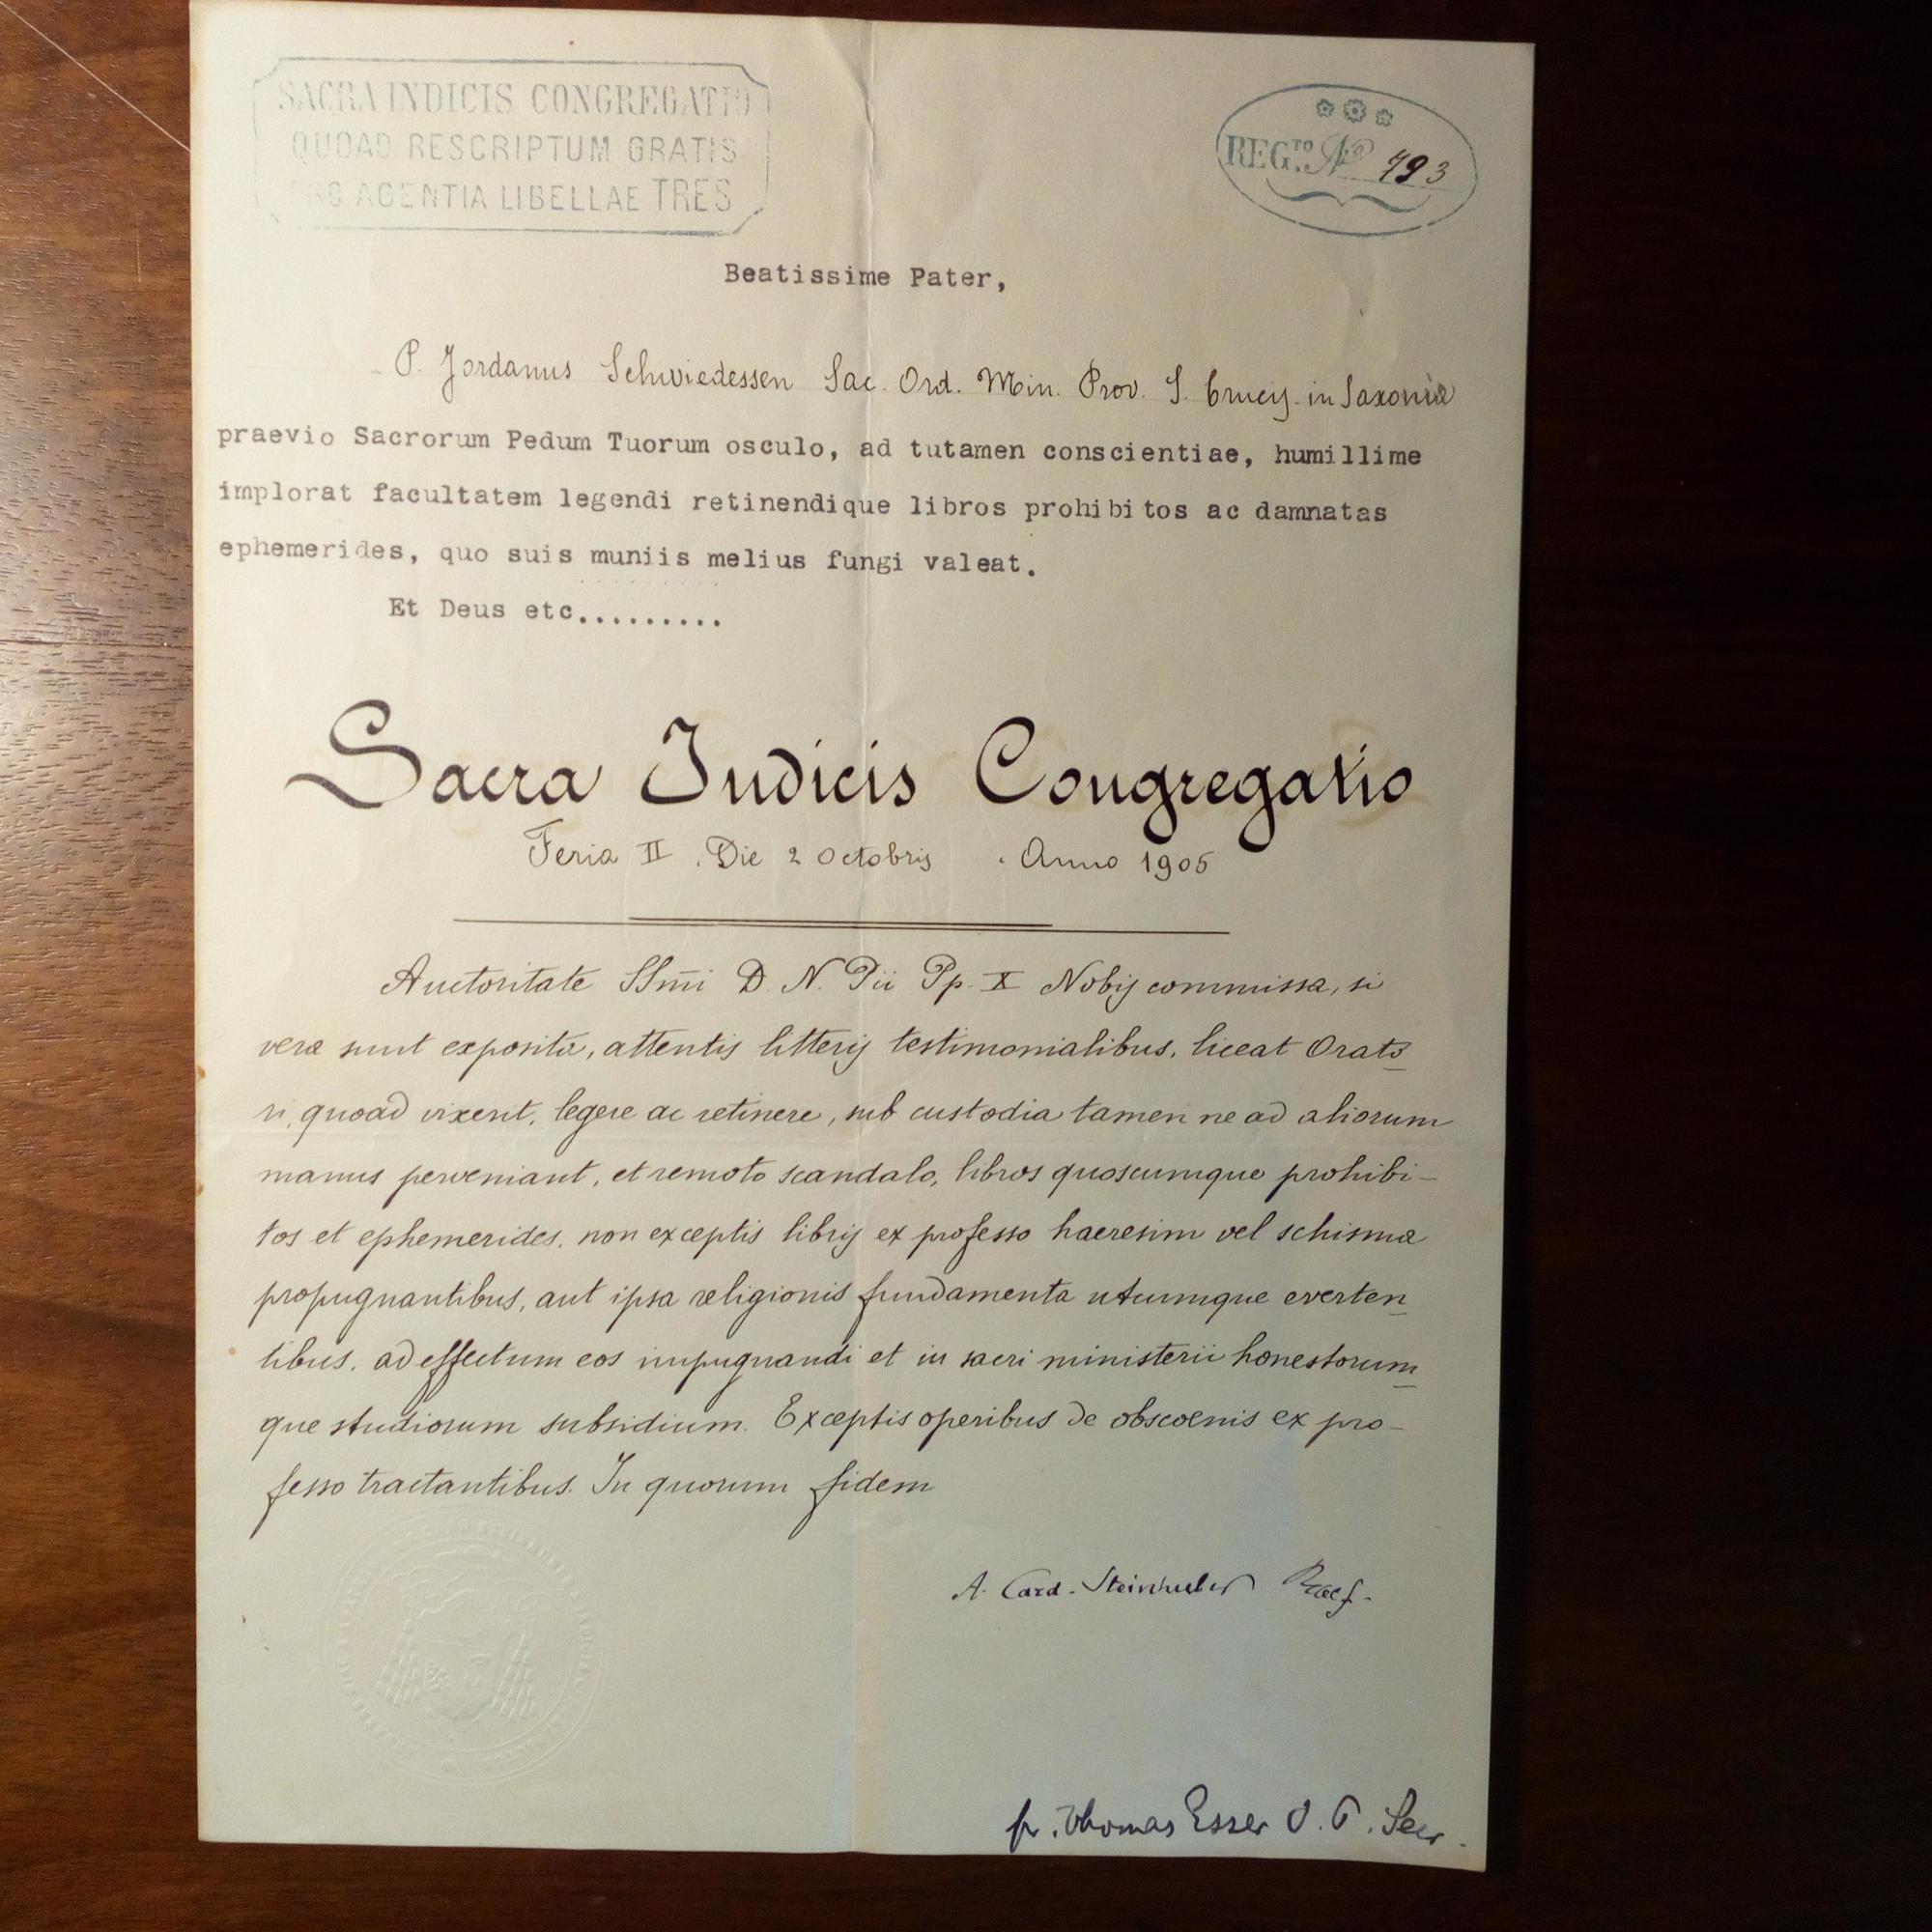 SACRA INDICIS CONGREGATIO
QUOAD RESCRIPTUM GRATIS
PRO AGENTIA LIBELLAE TRES
REG.TO No 793
Beatissime Pater,
P. Jordanus Schwiedessen Sac. Ord. Min. Prov. S. Crucis in Saxonia
praevio Sacrorum Pedum Tuorum osculo, ad tutamen conscientiae, humillime
implorat facultatem legendi retinendique libros prohibitos ac damnatas
ephemerides, quo suis muniis melius fungi valeat.
Et Deus etc.........
Sacra Indicis Congregatio
Feria II . Die 2 Octobris . Anno 1905
Auctoritate SSmi D. N. Pii Pp. X Nobis commissa, si
vera sunt exposita, attentis litteris testimonialibus, liceat Orato
ri, quoad vixerit, legere ac retinere, sub custodia tamen ne ad aliorum
manus perveniant, et remoto scandalo, libros quoscumque prohibi-
tos et ephemerides, non exceptis libris ex professo haeresim vel schisma
propugnantibus, aut ipsa religionis fundamenta utcumque everten
tibus, ad effectum eos impugnandi et in sacri ministerii honestorum
que studiorum subsidium. Exceptis operibus de obscoenis ex pro-
fesso tractantibus. In quorum fidem
A. Card. Steinhuber Praef.
fr. Thomas Esser O. P. Secr.